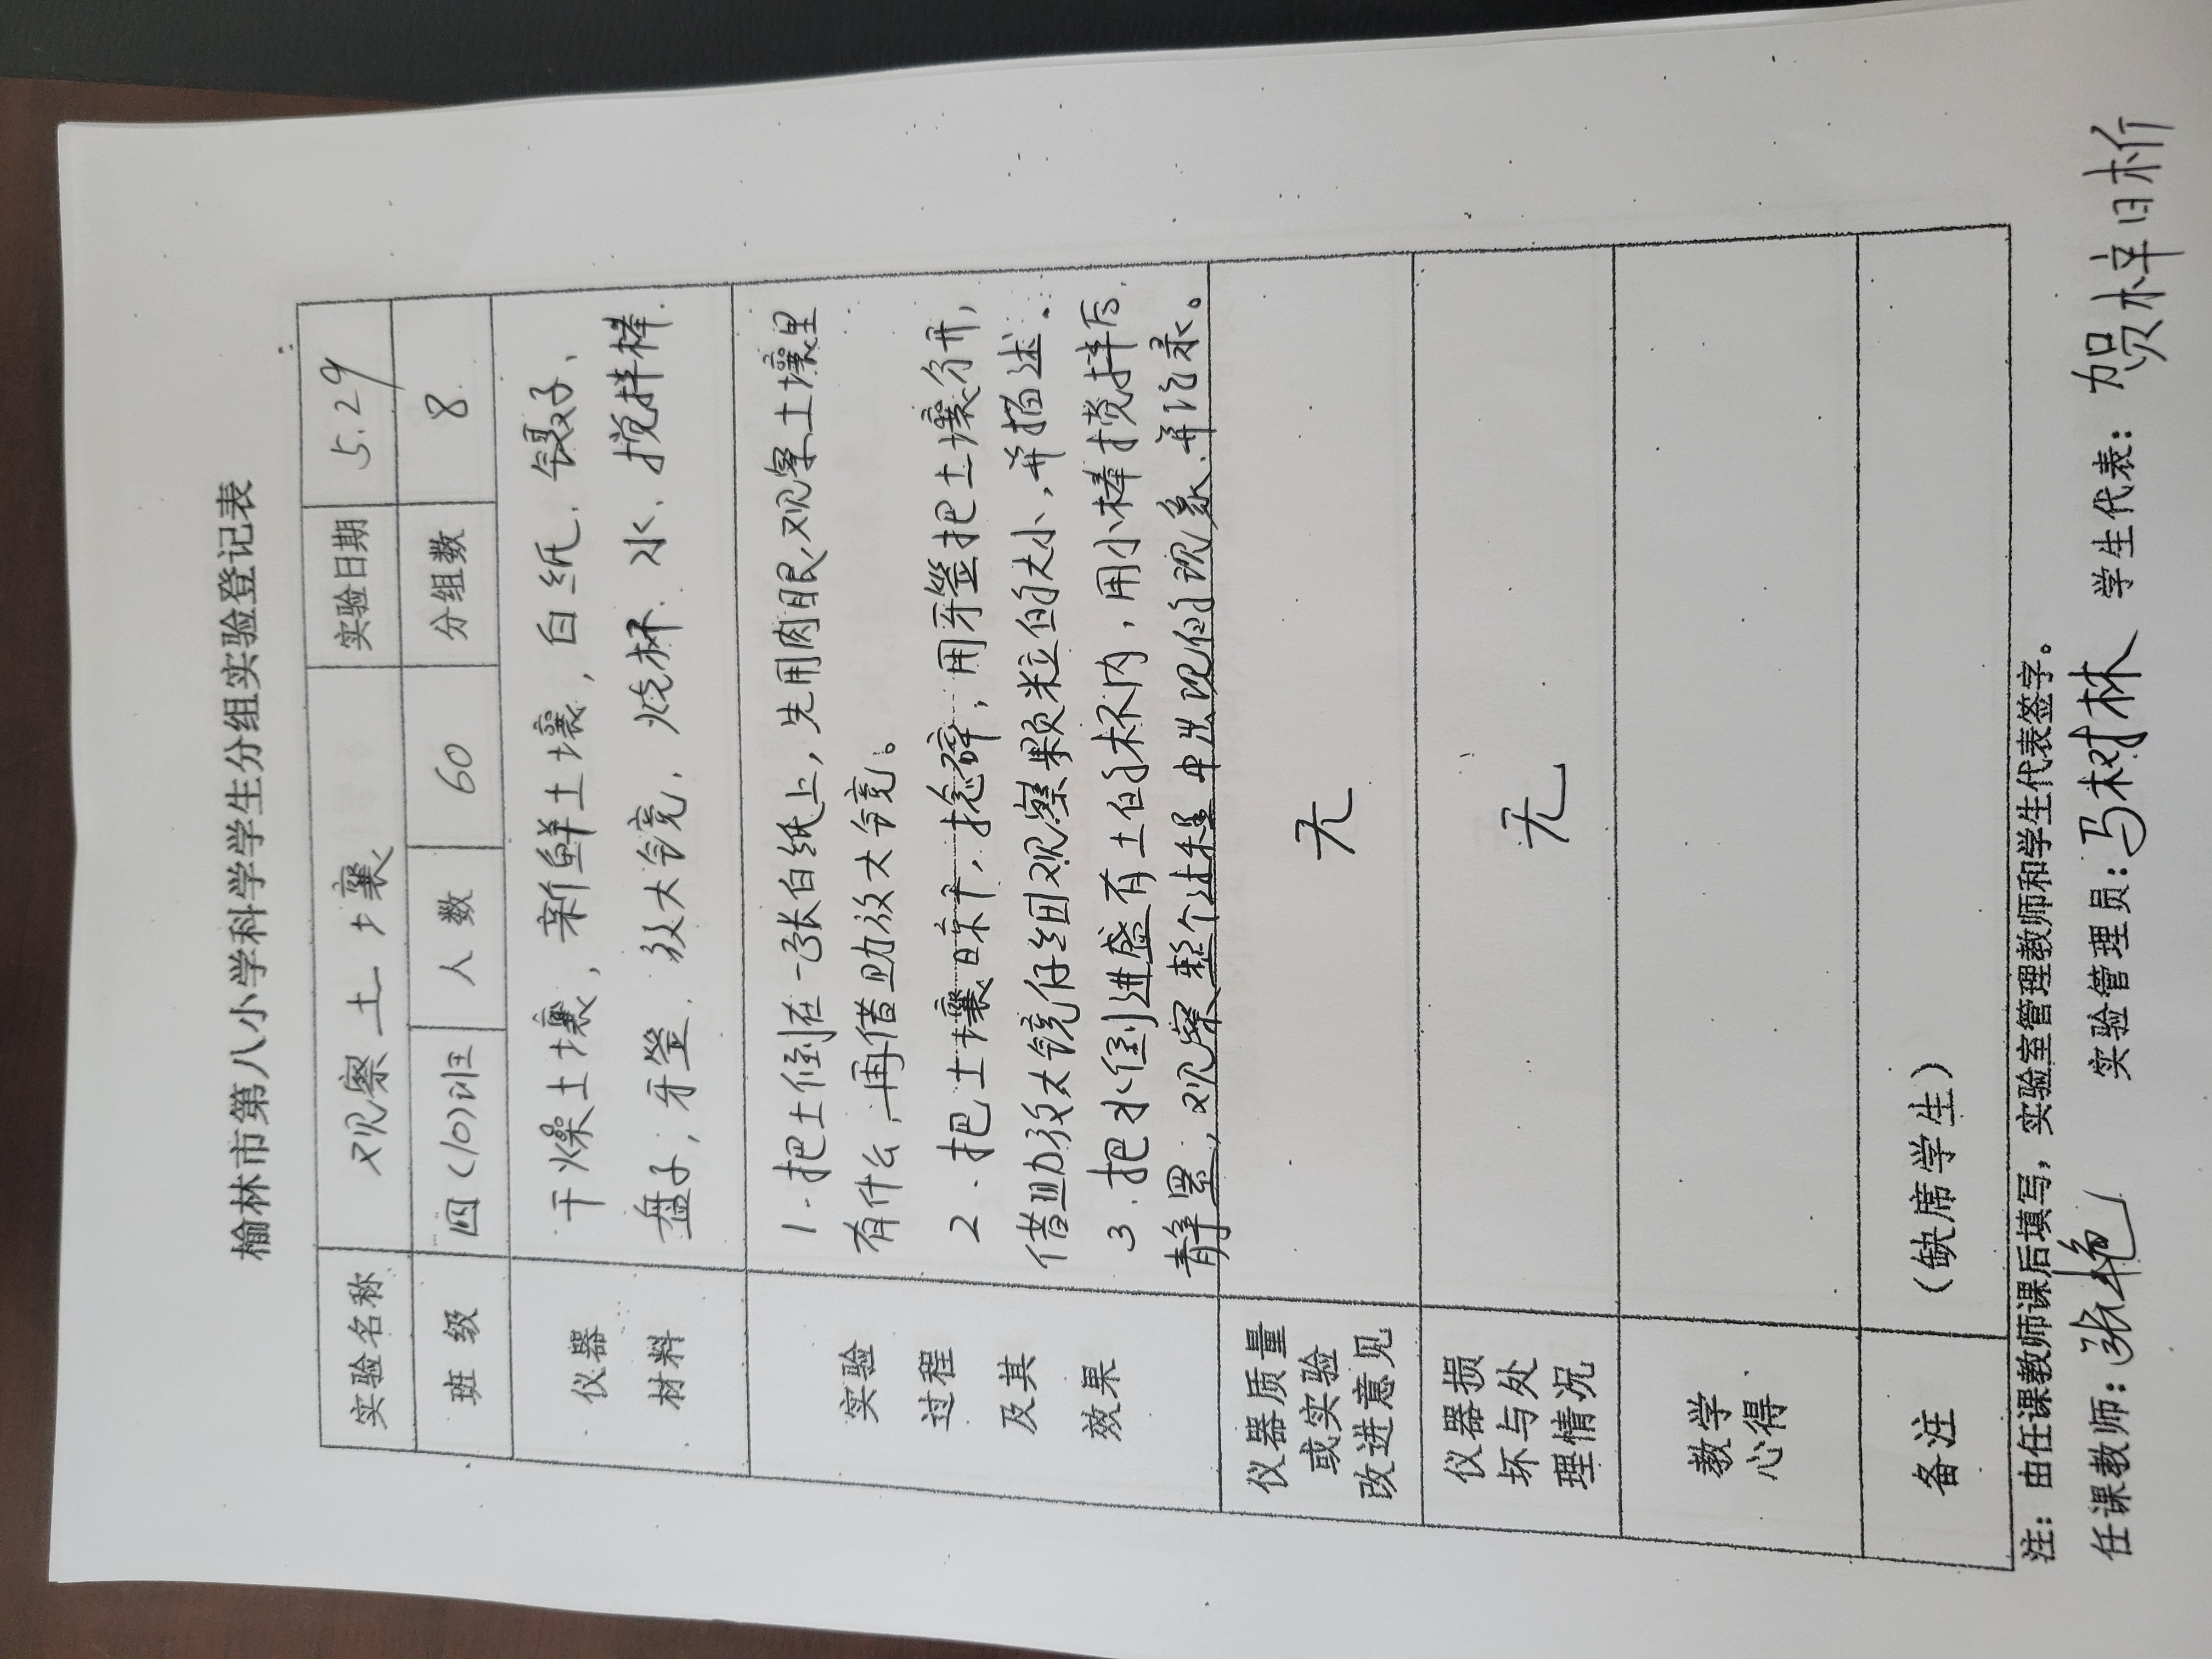 榆林市第八小学科学学生分组实验登记表
实验名称 观察土壤 实验日期 5.29
班 级 四(10)班 人 数 60 分组数 8
仪器
材料
干燥土壤，新鲜土壤，白纸、镊子、
盘子，牙签、放大镜，烧杯、水、搅拌棒.
实验
过程
及其
效果
1.把土倒在一张白纸上，先用肉眼观察土壤里
有什么，再借助放大镜。
2.把土壤晾干，捻碎，用牙签把土壤分开，
借助放大镜仔细观察颗粒的大小，并描述.
3.把水倒进盛有土的杯内，用小棒搅拌后
静置，观察整个过程中出现的现象.并记录。
仪器质量
或实验
改进意见
无
仪器损
坏与处
理情况
无
教学
心得
备注 （缺席学生）
注：由任课教师课后填写，实验室管理教师和学生代表签字。
任课教师：张艳 实验管理员：马树林 学生代表：贺梓